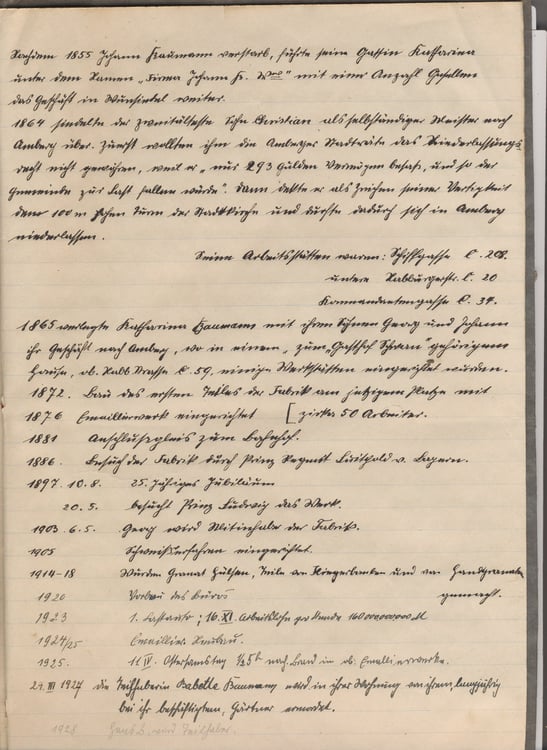 Nachdem 1855 Johann Baumann verstarb, führte seine Gattin Katharina
unter dem Namen „Firma Johann B. Wwe" mit einer Anzahl Gesellen
das Geschäft in Wunsiedel weiter.
1864 siedelte der zweitälteste Sohn Christian als selbständiger Meister nach
Amberg über. Zuerst wollten ihm die Amberger Stadträte das Niederlassungs
recht nicht gewähren, weil er „nur 293 Gulden Vermögen besaß, und so der
Gemeinde zur Last fallen würde". Dann deckte er als Zeichen seiner Fertigkeit
den 100 m hohen Turm der Stadtkirche und durfte dadurch sich in Amberg
niederlassen.
Seine Arbeitsstätten waren: Schiffgasse C. 208.
untere Nabburgerstr. C. 20
Kommandantengasse C. 34.
1865 verlegte Katharina Baumann mit ihren Söhnen Georg und Johann
ihr Geschäft nach Amberg, wo in einem „zum Gasthof Schwan" gehörigem
Hause, ob. Nabb. Strasse C. 59, einige Werkstätten eingerichtet wurden.
1872. Bau des ersten Teiles der Fabrik am jetzigen Platze mit
1876 Emaillierwerk eingerichtet [ zirka 50 Arbeiter.
1881 Anschlussgleis zum Bahnhof.
1886. Besuch der Fabrik durch Prinz Regent Luitpold v. Bayern.
1897. 10.8. 25. Jähriges Jubiläum
20.5. besucht Prinz Ludwig das Werk.
1903. 6.5. Georg wird Mitinhaber der Fabrik.
1905 Schweißverfahren eingerichtet.
1914-18 Wurden Granat Hülsen, Teile an Fliegerbomben und an Handgranaten
1920 Vorbau des Büros gemacht.
1923 1. Lastauto; 16. XI. Arbeitslohn pro Stunde 160000000000 M
1924/25 Emaillier Neubau.
1925. 11. IV. Ostersamstag 1/2 5 h nach. Brand im ob. Emaillierwerke.
24. III 1927 die Teilhaberin Babette Baumann wird in ihrer Wohnung von ihrem, langjährig
bei ihr beschäftigten, Gärtner ermordet.
1928 Hans B. wird Teilhaber.